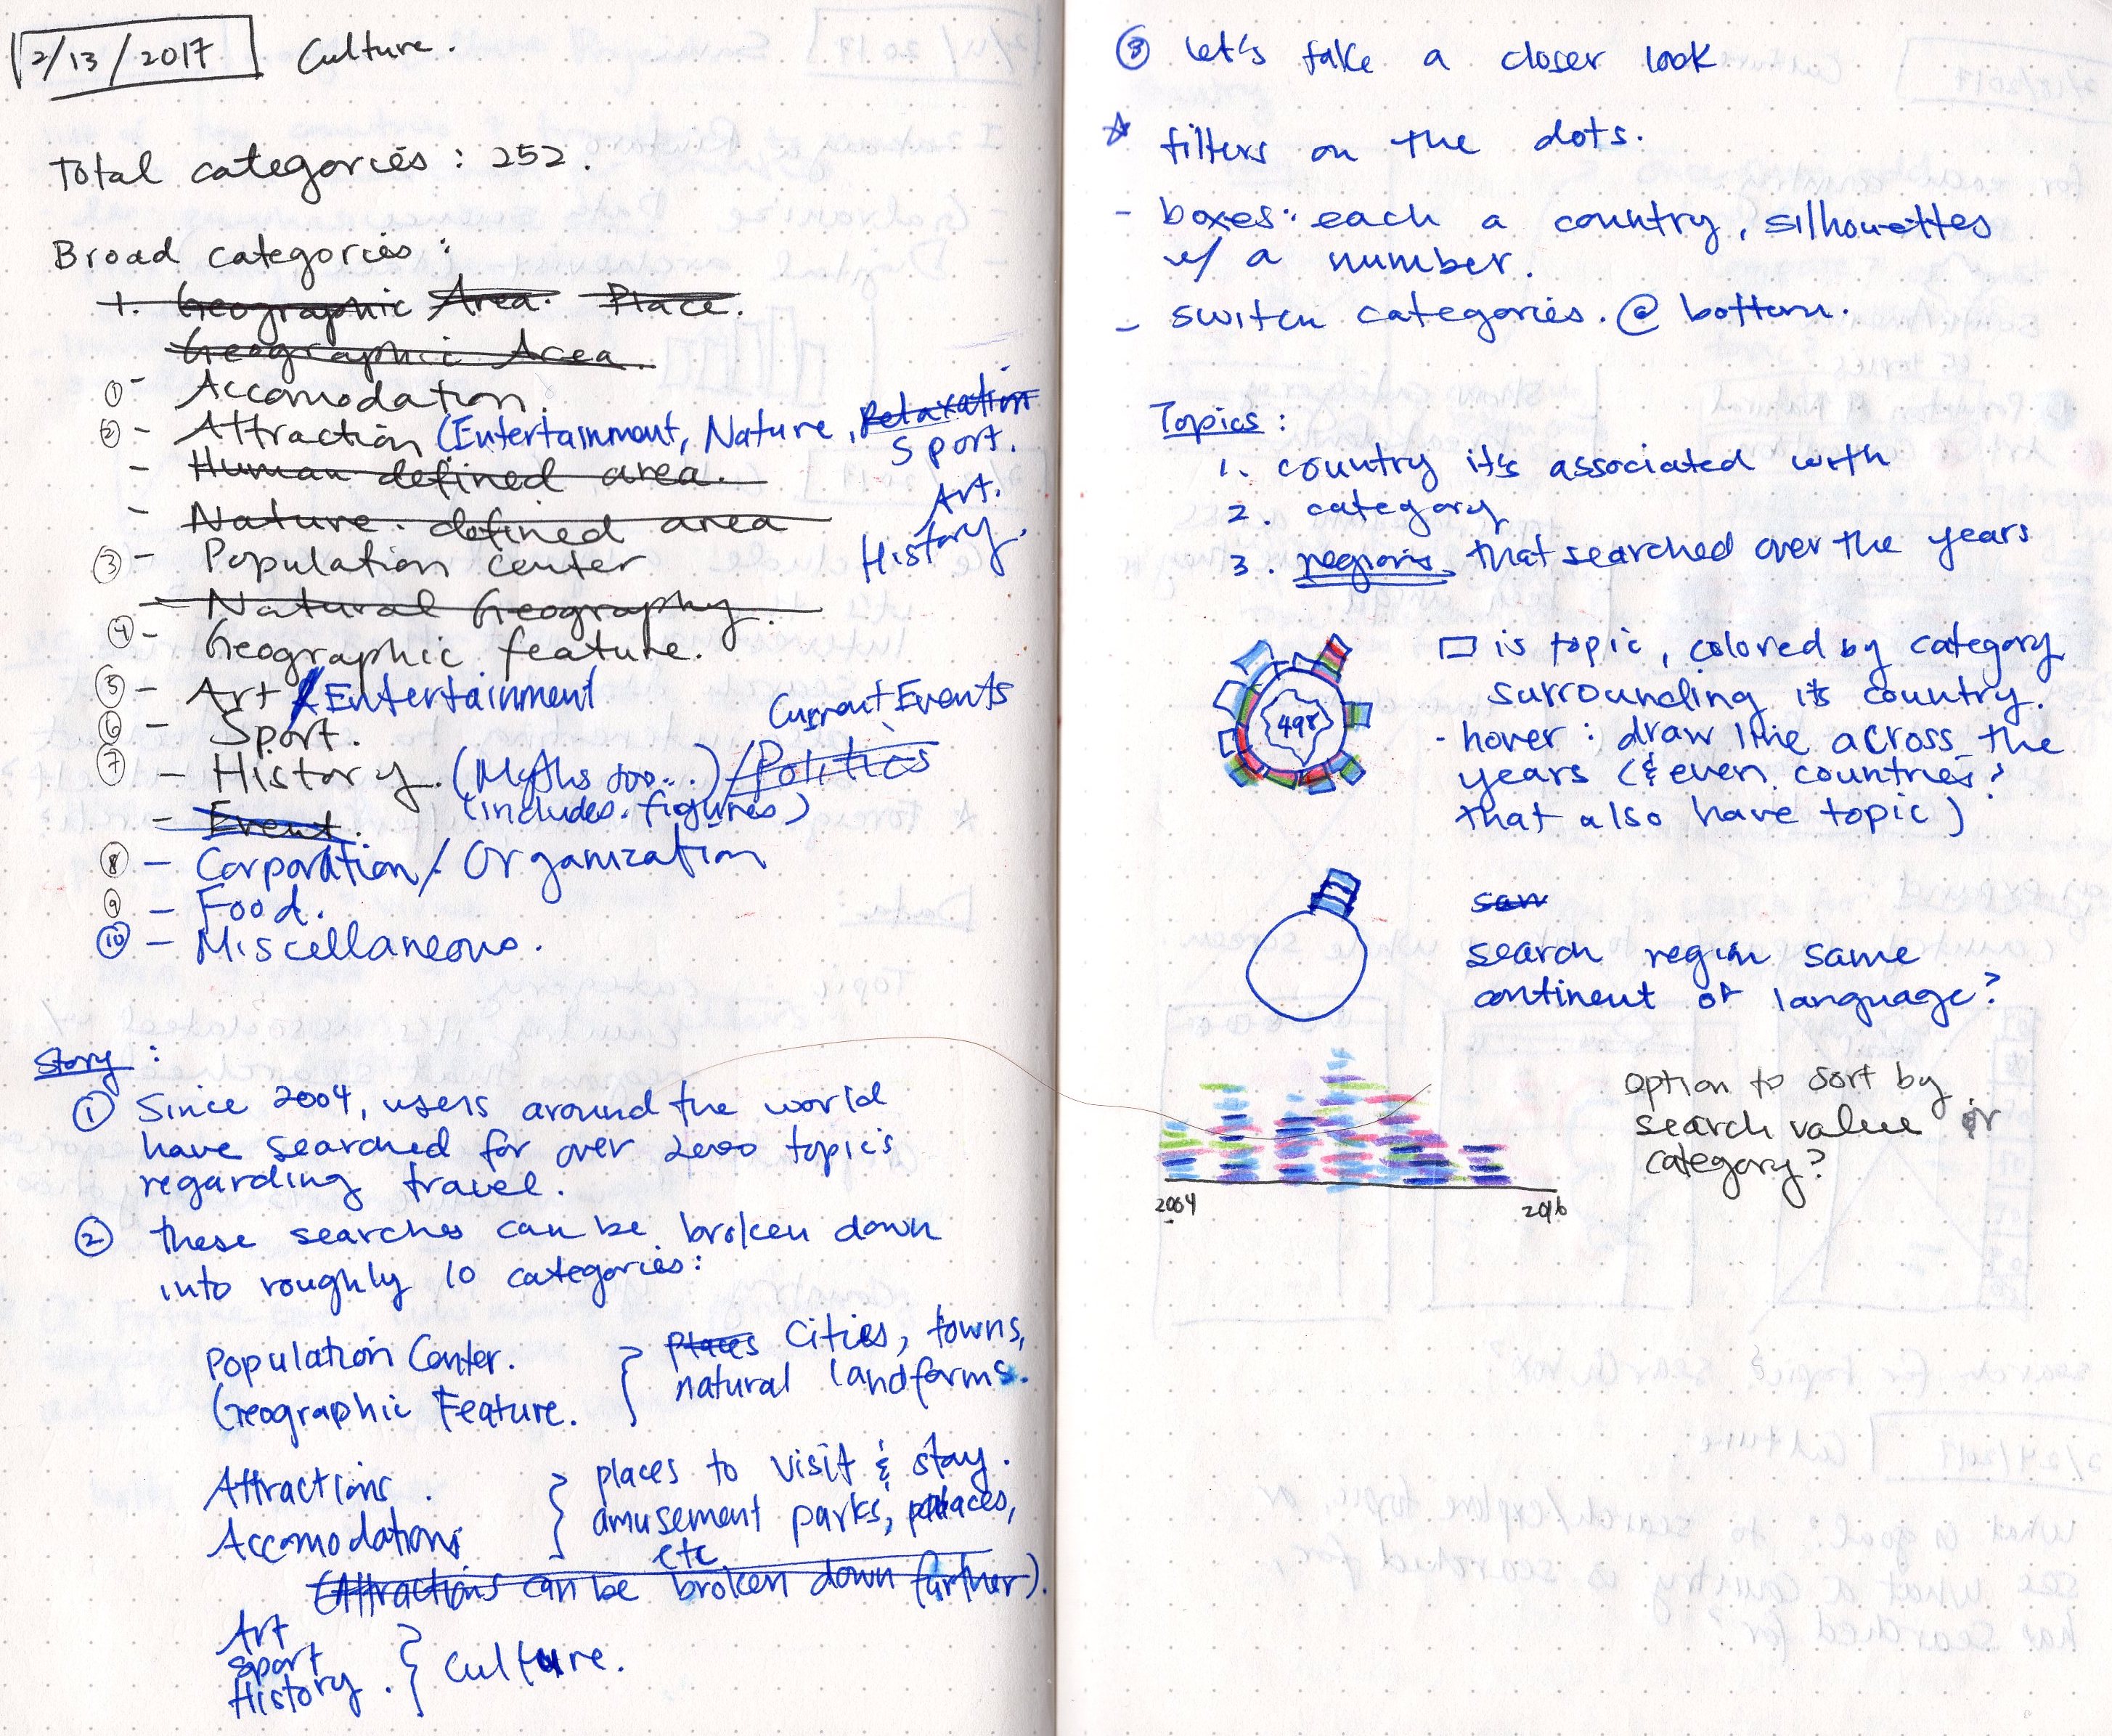 2/13/2017 Culture.
Total categories : 252.
Broad categories :
1. Geographic Area. Place.
Geographic Area.
① - Accomodation.
② - Attraction (Entertainment, Nature, Relaxation
Sport.
Art.
History.
- Human defined area.
- Nature. defined area
③ - Population center
Natural Geography.
④ - Geographic feature.
⑤ - Art / Entertainment
⑥ - Sport.
Current Events
⑦ - History. (Myths too..) / Politics
(includes. figures)
- Event.
⑧ - Corporation / Organization
⑨ - Food.
⑩ - Miscellaneous.
Story :
① Since 2004, users around the world
have searched for over 2000 topics
regarding travel.
② these searches can be broken down
into roughly 10 categories:
Population Center.
Geographic Feature.
} Places Cities, towns,
natural landforms.
Attractions.
Accomodations
} places to visit & stay.
amusement parks, palaces,
etc
(Attractions can be broken down further).
Art
Sport
History.
} Culture.
③ let's take a closer look
☆ filters on the dots.
- boxes: each a country, silhouettes
w/ a number.
- switch categories. @ bottom.
Topics :
1. country it's associated with
2. category
3. regions that searched over the years
498
▭ is topic, colored by category
surrounding its country.
- hover : draw line across the
years (& even countries?
that also have topic)
saw
search region same
continent or language?
option to sort by
search value or
category?
2004 2016